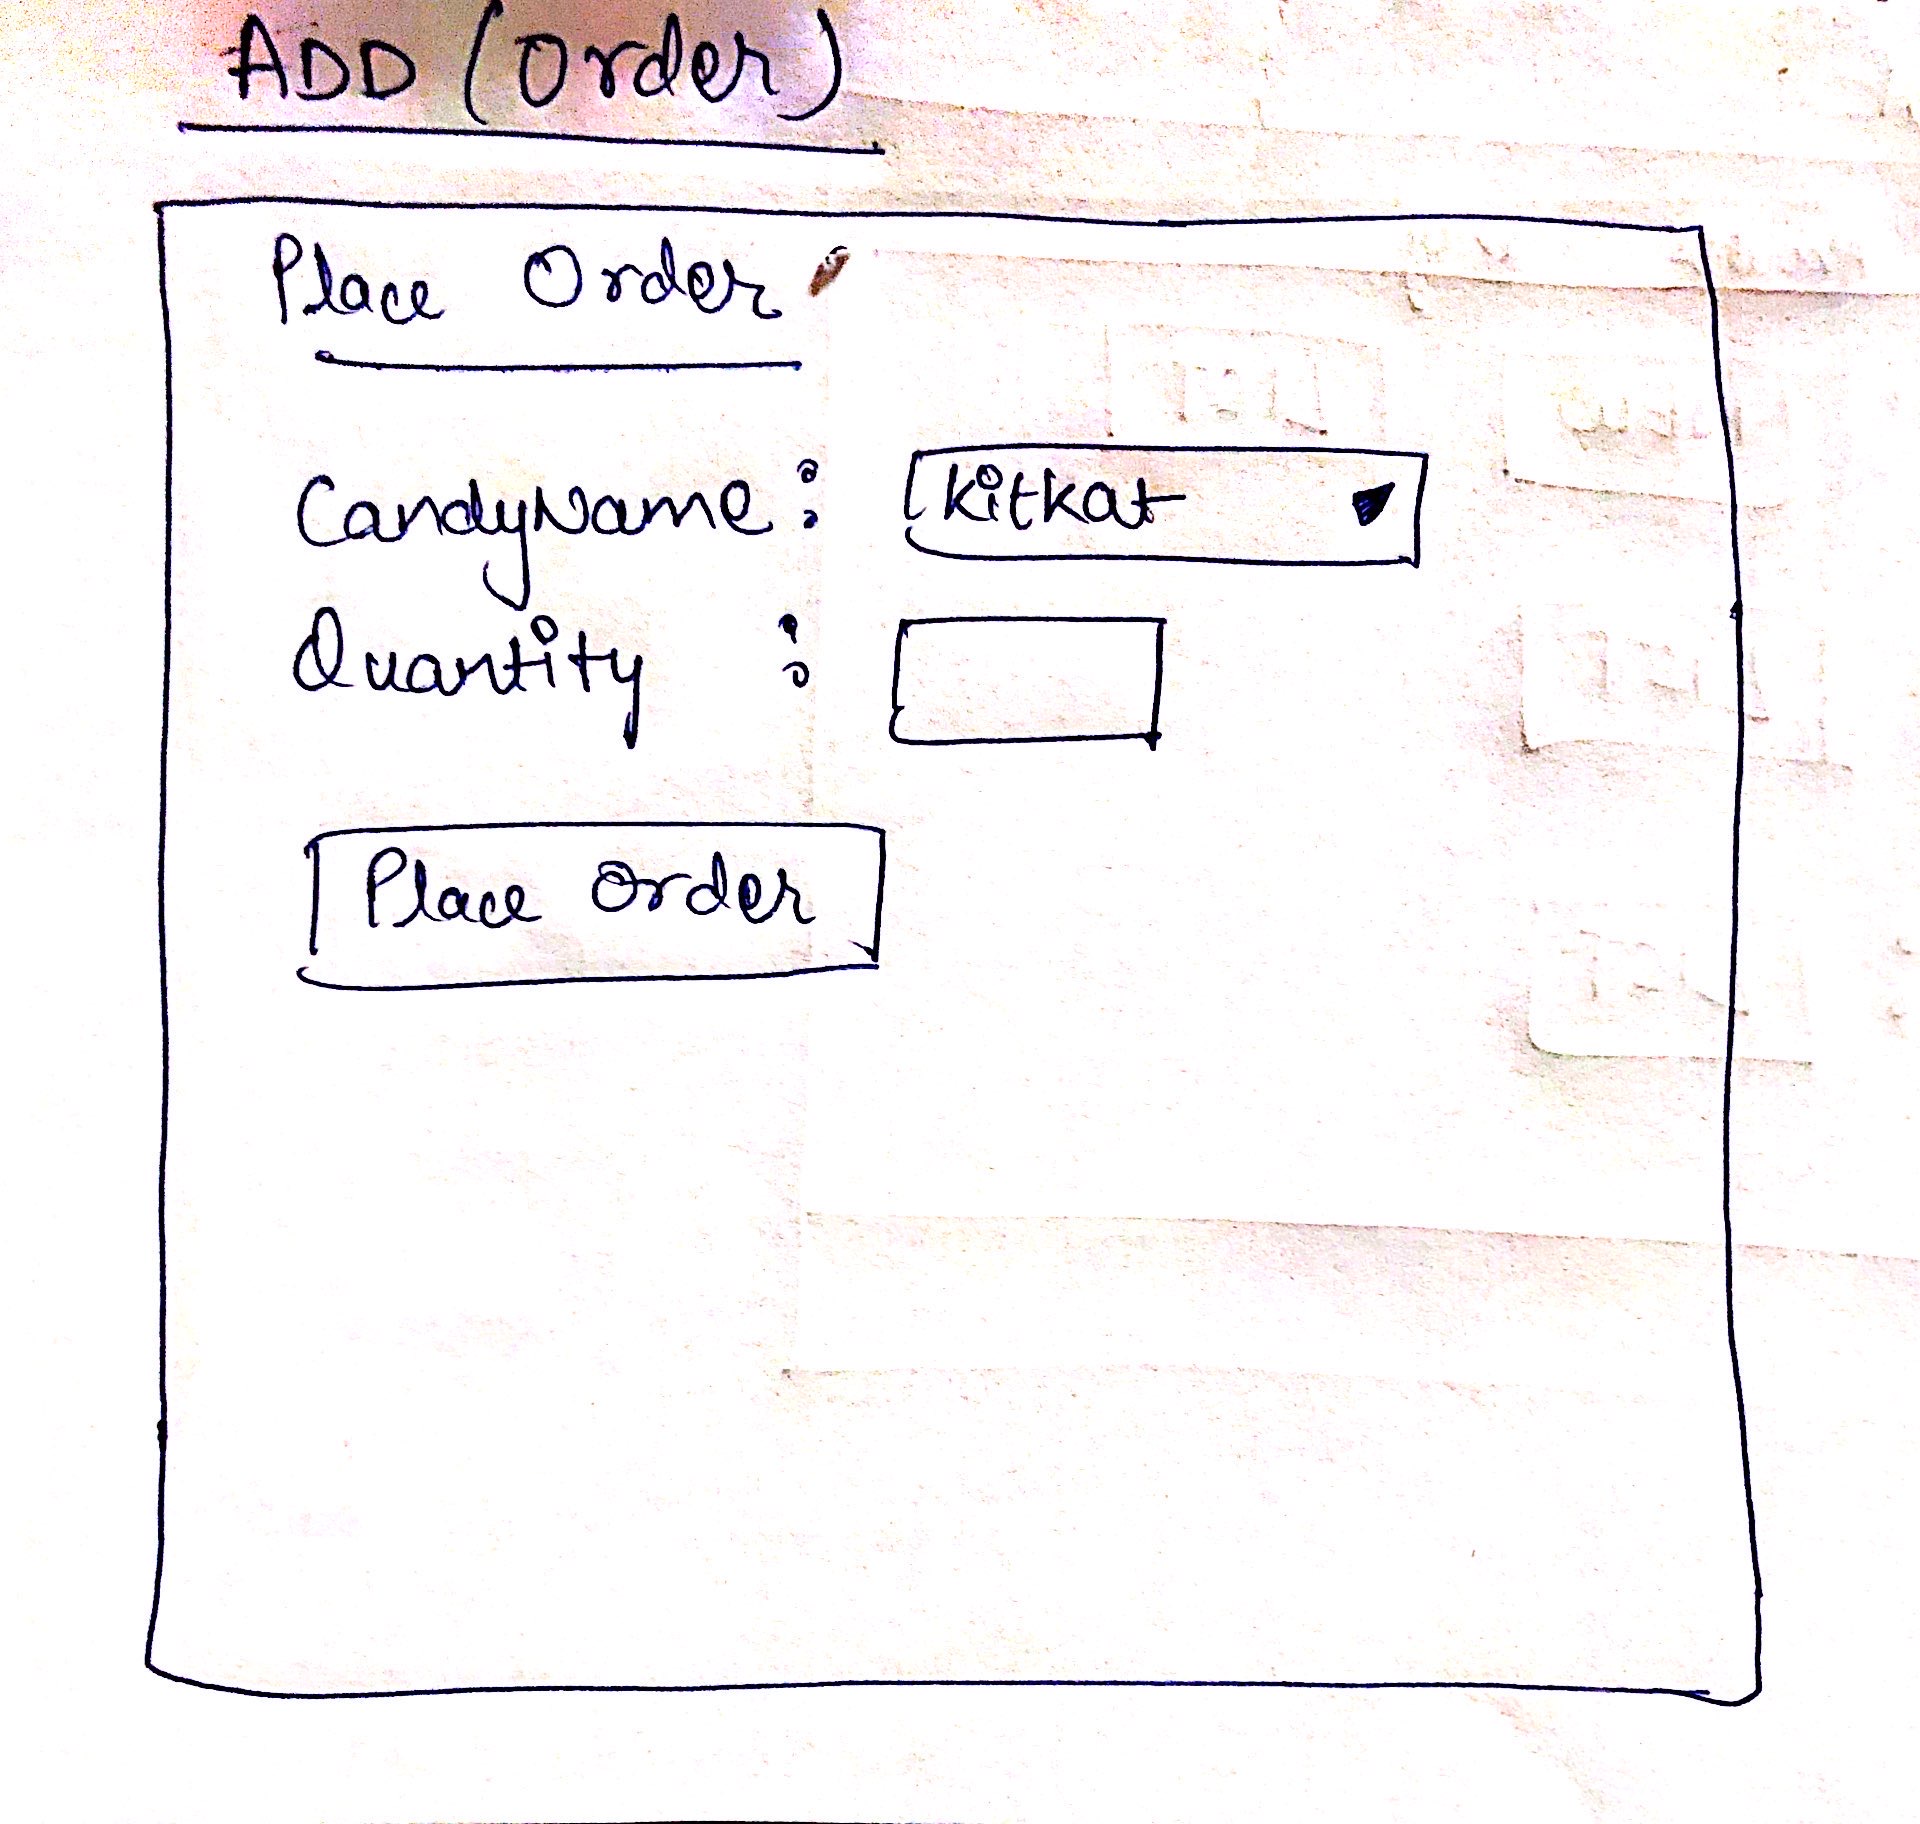 ADD (Order)
Place Order
CandyName : Kitkat
Quantity :
Place Order